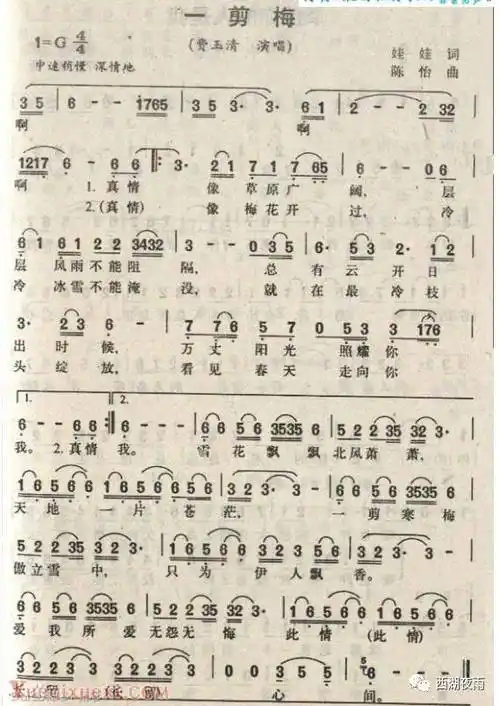 一剪梅
1=G 4/4
(费玉清 演唱)
娃娃 词
中速稍慢 深情地
陈怡 曲
3 5 6 - - 1765 3 5 3 - 3· 6 1 2 - - 2 32
啊 啊
1217 6 - 6 6 3· 2 1 7 1 7 65 6 - - 0 6
啊 1.真情 像草原广阔, 层
2.(真情) 像梅花开过, 冷
6 1 6 1 2 2 3432 3 - - 0 3 5 6· 5 3 2· 1 2
层风雨不能阻隔, 总有云开日
冷冰雪不能掩没, 就在最冷枝
3· 2 3 6 - 7 7 6 5 7 0 5 3 3 176
出时候, 万丈阳光照耀你
头绽放, 看见春天走向你
1. 2.
6 - - 6 6 6 - - 6 5 6 3535 6 6 5 2 2 35 2 3·
我。 2.真情 我。 雪花飘飘北风萧萧,
1 6 5 6 1 6 5 6 1 6 5 6 3 2 3 - 6 5 6 3535 6 6
天地一片苍茫, 一剪寒梅
5 2 2 35 3 2 3· 1 6 5 6 1 6 5 6 1 2 3 2 3 -
傲立雪中, 只为伊人飘香。
6 6 5 6 3535 6 6 5 2 2 35 2 3· 1 6 5 6 1 6 5 6
爱我所爱无怨无悔 此情(此情)
3 2 2 2 3 2 2 2 3 2 2 3 - 0 3 0 5 6 - - -
心间。
西湖夜雨